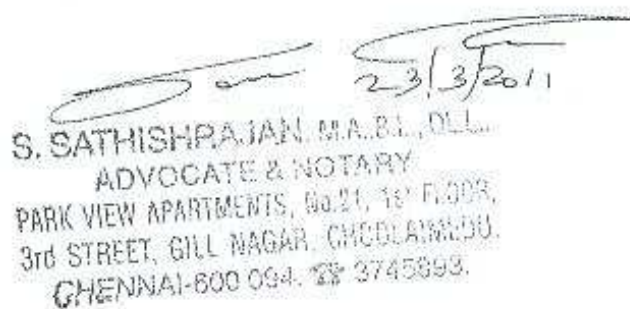 23/3/2011
S. SATHISHRAJAN, M.A.,B.L., DLL.,
ADVOCATE & NOTARY
PARK VIEW APARTMENTS, No.21, 1st FLOOR,
3rd STREET, GILL NAGAR, CHOOLAIMEDU,
CHENNAI-600 094. ☎ 3745893.